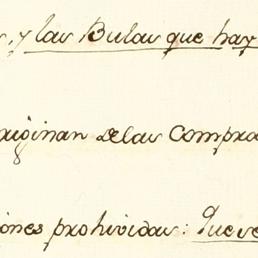 s, y las Bulas que hay
originan de las compra
iones prohividas: Que se